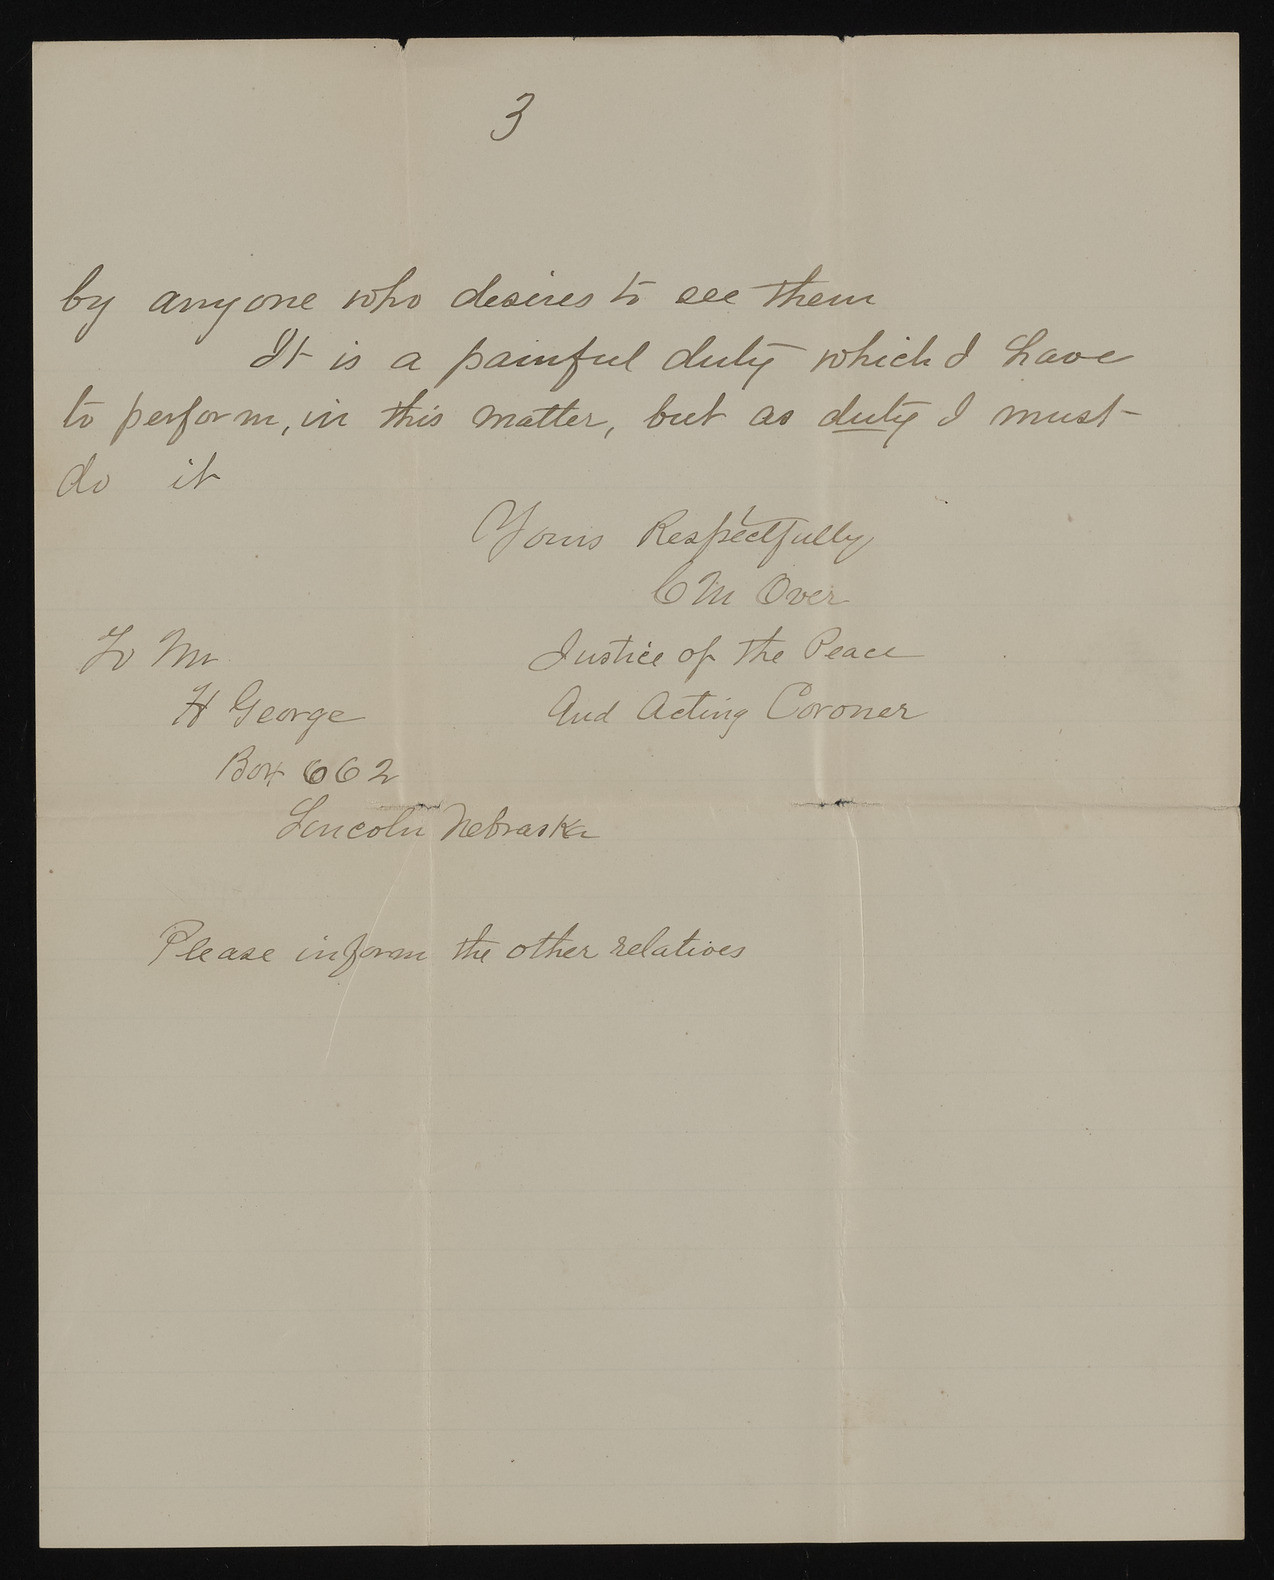 3
by anyone who desires to see them
It is a painful duty which I have
to perform, in this matter, but as duty I must
do it
Yours Respectfully
C M Over
To Mr Justice of the Peace
H George And Acting Coroner
Box 662
Lincoln Nebraska
Please inform the other relatives